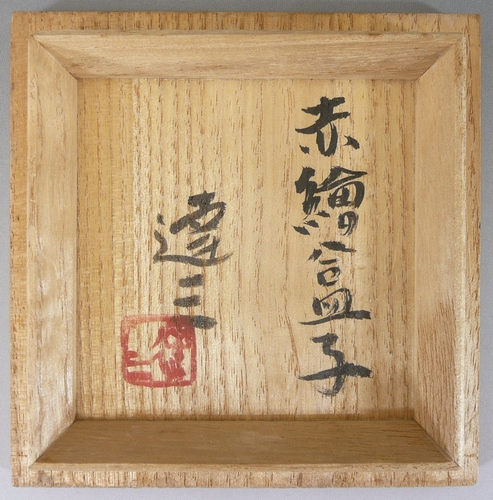 赤繪盒子
達三